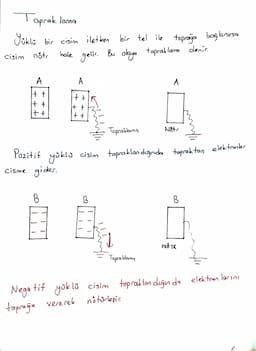 Topraklama
Yüklü bir cisim iletken bir tel ile toprağa bağlanırsa
cisim nötr hale gelir. Bu olaya topraklama denir.
A A A
+ + + + +
+ + + +
+ + + +
Topraklama Nötr
Pozitif yüklü cisim topraklandığında topraktan elektronlar
cisme gider.
B B B
nötr
Topraklama
Negatif yüklü cisim topraklandığında elektronlarını
toprağa vererek nötürleşir